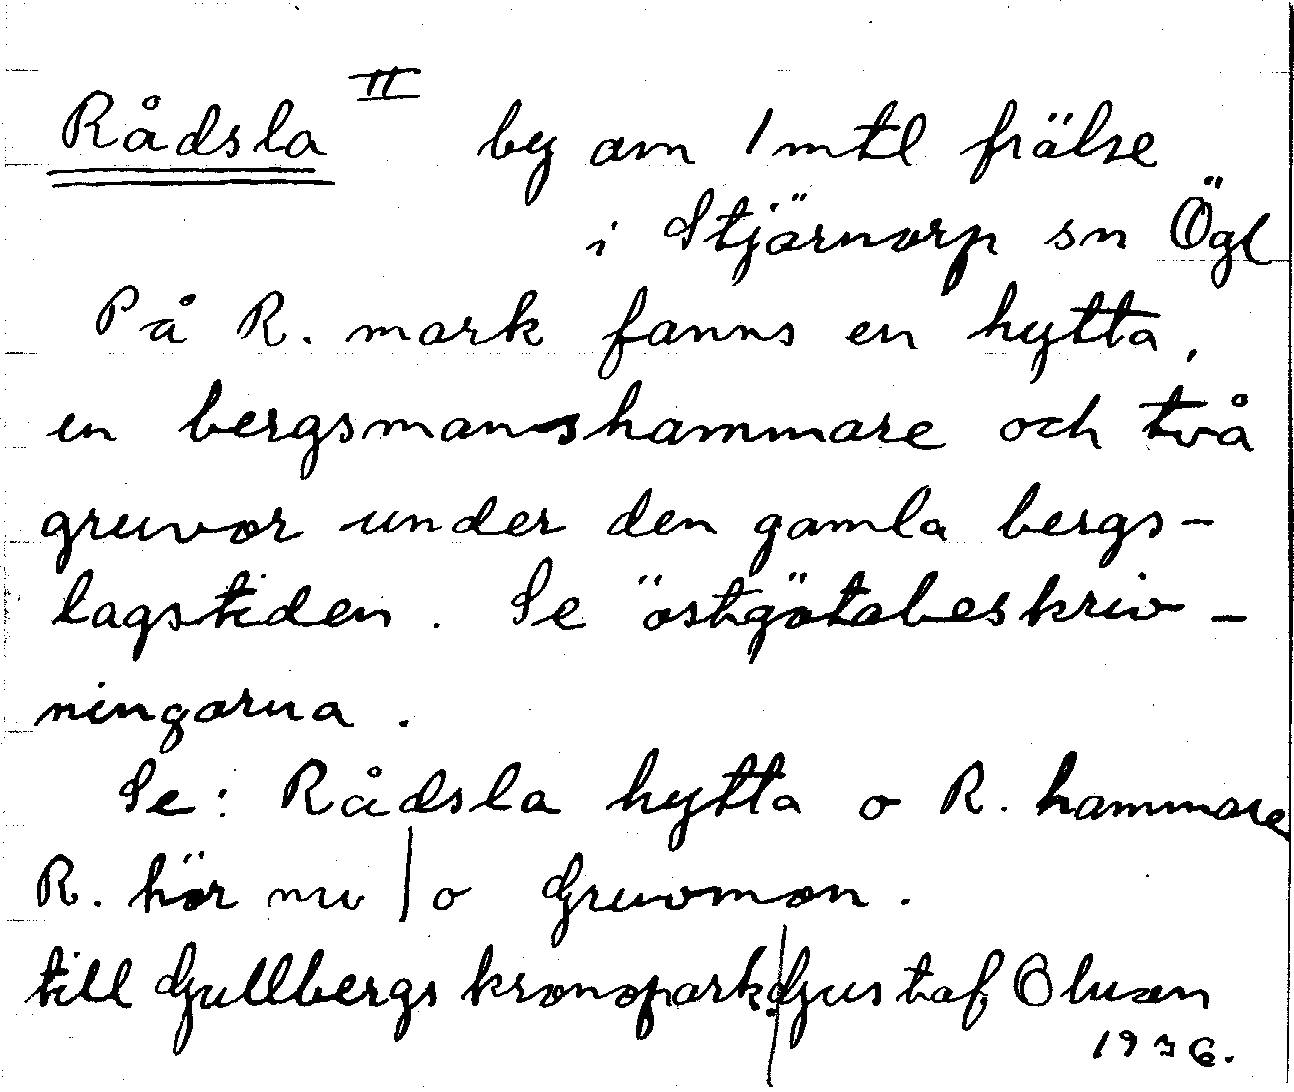 Rådsla II by om 1 mtl frälse
i Stjärnorp sn Ögl
På R. mark fanns en hytta,
en bergsmanshammare och två
gruvor under den gamla bergs-
lagstiden. Se östgötabeskriv-
ningarna.
Se: Rådsla hytta o R. hammare
R. hör nu | o Gruvmon.
till Gullbergs kronopark. | Gustaf Olson
1936.